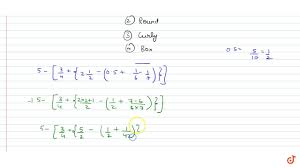 ② Round
③ Curly
④ Box
0.5 = 5/10 = 1/2
5 - [3/4 + {2 1/2 - (0.5 + 1/6 - 1/7)}]
5 - [3/4 + {2×2+1/2 - (1/2 + 7-6/6×7)}]
5 - [3/4 + {5/2 - (1/2 + 1/42)}